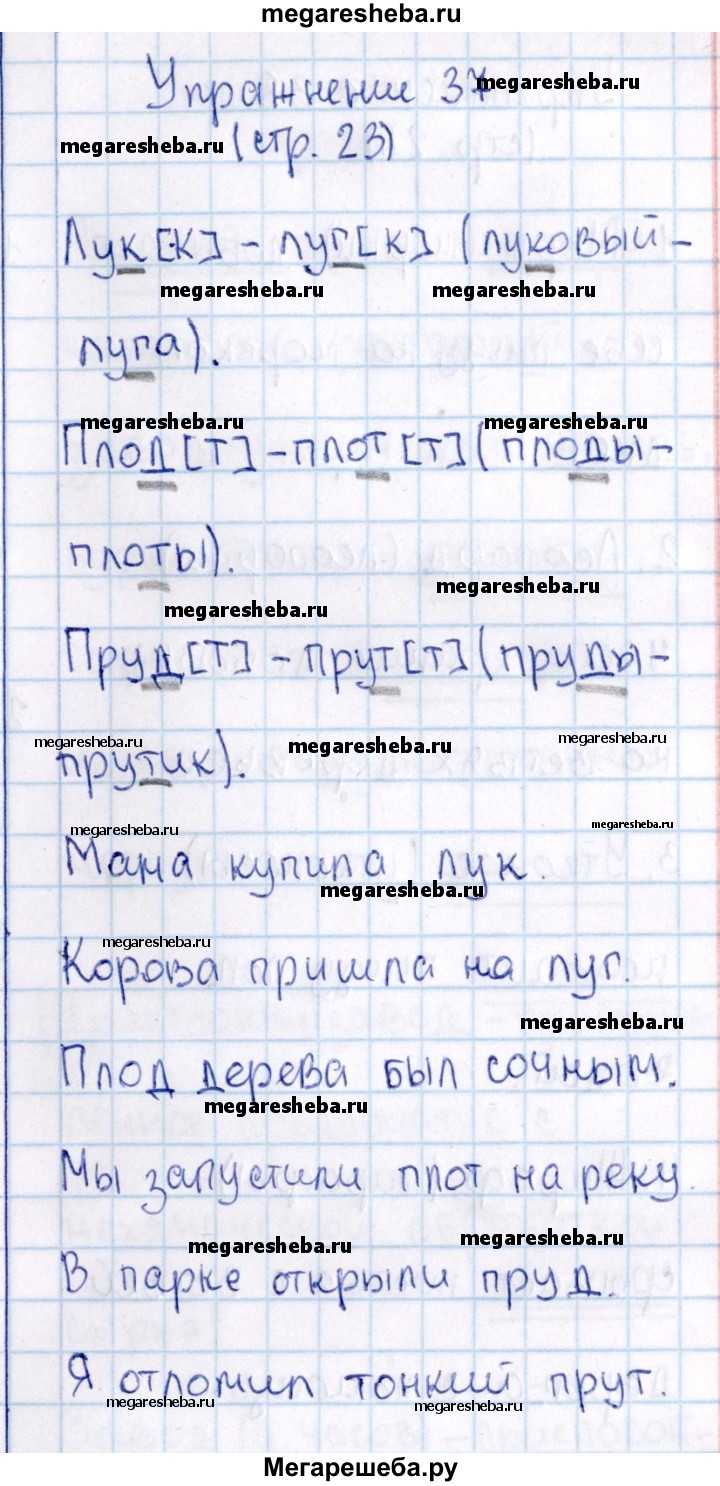 megaresheba.ru
Упражнение 37
megaresheba.ru
megaresheba.ru
(стр. 23)
Лук[к] - луг[к] (луковый-
megaresheba.ru megaresheba.ru
луга).
megaresheba.ru megaresheba.ru
Плод[т] - плот[т] (плоды-
плоты).
megaresheba.ru
megaresheba.ru
Пруд[т] - прут[т] (пруды-
megaresheba.ru megaresheba.ru megaresheba.ru
прутик).
megaresheba.ru megaresheba.ru
Мама купила лук.
megaresheba.ru
megaresheba.ru
Корова пришла на луг.
megaresheba.ru
Плод дерева был сочным.
megaresheba.ru
Мы запустили плот на реку.
megaresheba.ru megaresheba.ru
В парке открыли пруд.
Я отломил тонкий прут.
megaresheba.ru megaresheba.ru
Мегарешеба.ру